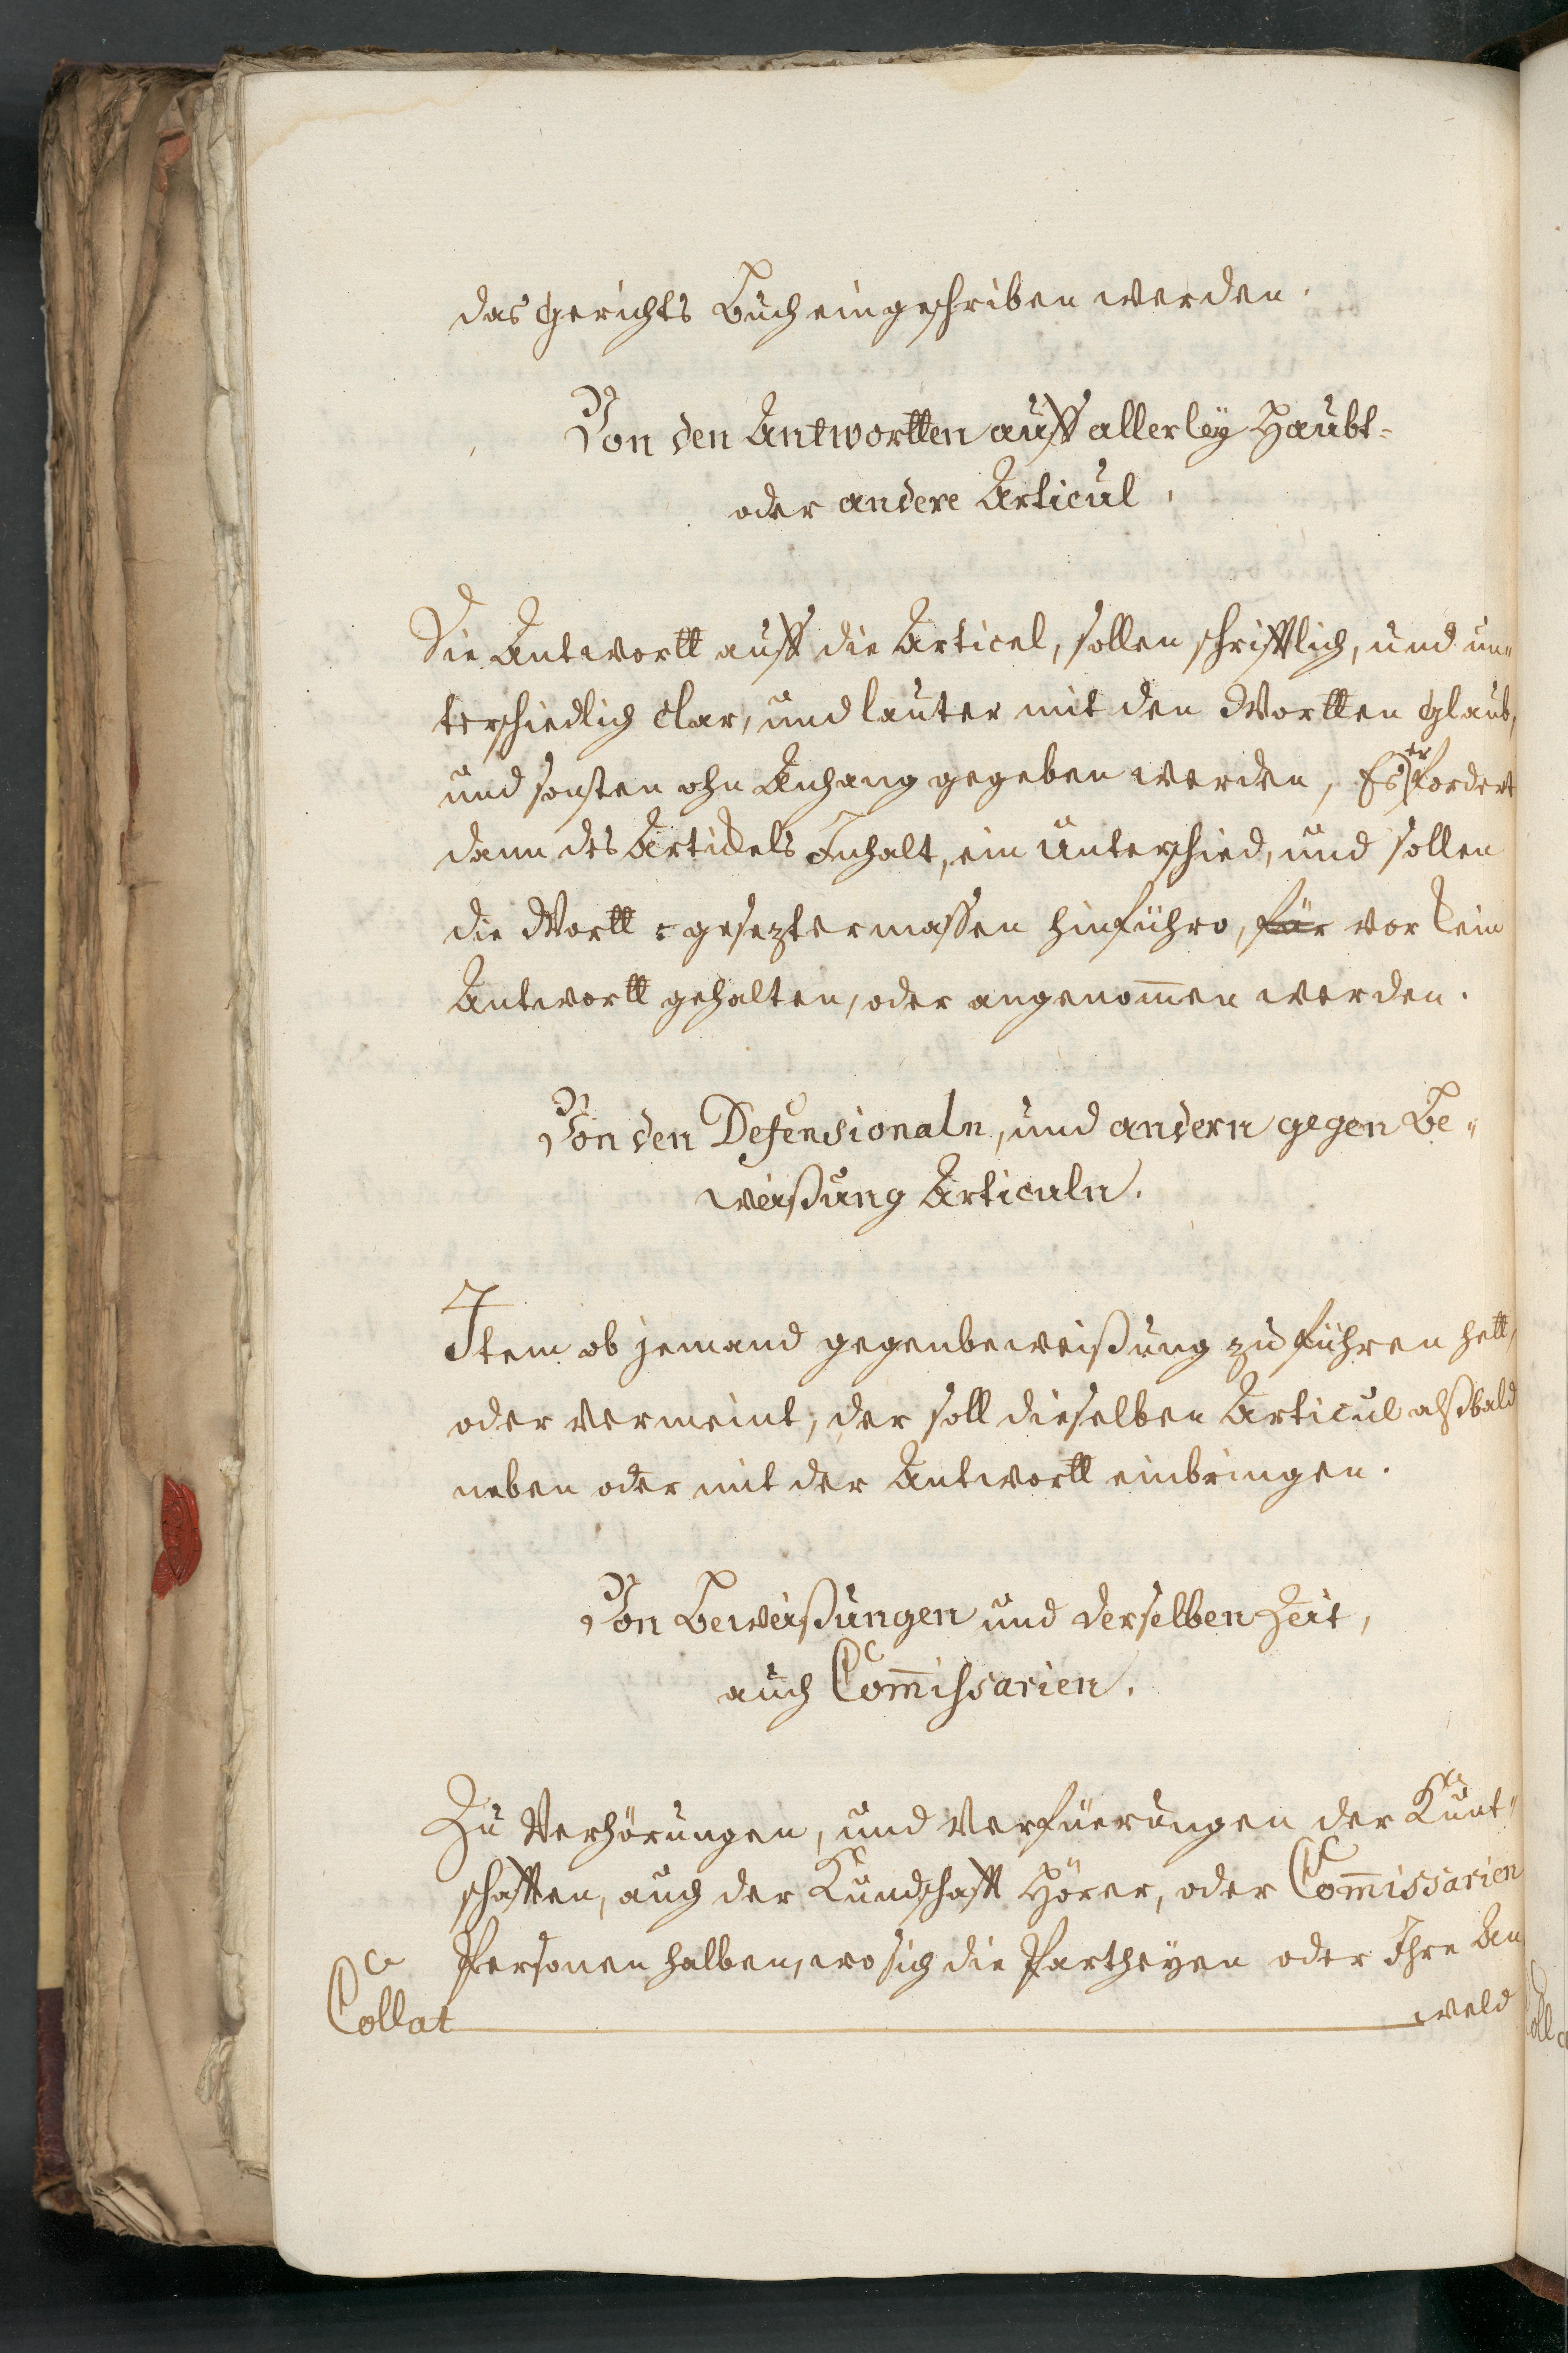 das Gerichts Buch eingeschriben werden.
Von den Antwortten auff allerleÿ Haubt-
oder andere Articul.
Die Antwortt auff die Articel, sollen schrifftlich, und un„
terschiedlich clar, und lauter mit den Wortten Glaub,
und sonsten ohn Anhang gegeben werden, Es erfordert
dann des Artickels Inhalt, ein Unterschied, und sollen
die Wortt gesezter massen hinführo, für vor kein
Antwortt gehalten, oder angenom̅en werden.
Von den Defensionaln, und andern gegen Be„
weißung Articuln.
Item ob jemand gegenbeweißung zu führen hett,
oder vermeint, der soll dieselben Articul alßbald
neben oder mit der Antwortt einbringen.
Von Beweißungen und derselben Zeit,
auch Com̅issarien.
Zu Verhörungen, und Verfüerungen der Kunt„
schafften, auch der Kundschafft Hörer, oder Com̅issarien
Personen halben, wo sich die Partheyen oder Ihre An
Collat
wäld